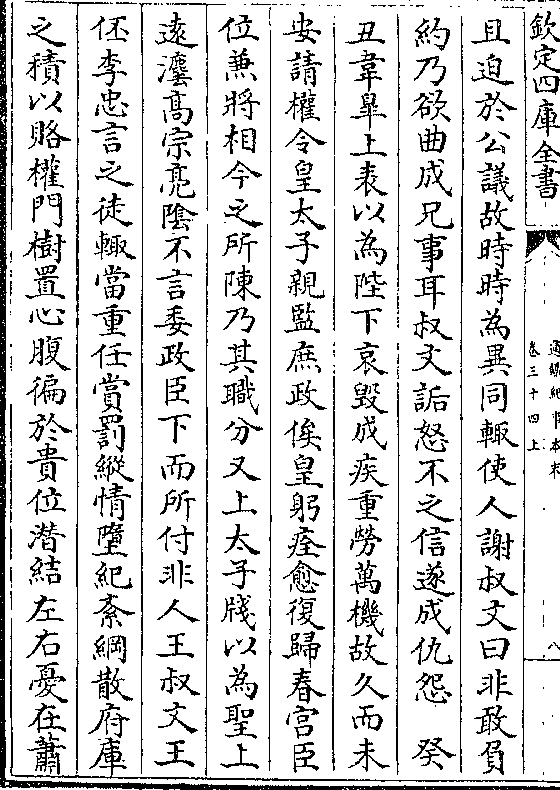 欽定四庫全書
通鑑紀事本末
卷三十四上
八
且迫於公議故時時為異同輒使人謝叔文曰非敢負
約乃欲曲成兄事耳叔文詬怒不之信遂成仇怨 癸
丑韋臯上表以為陛下哀毀成疾重勞萬機故久而未
安請權令皇太子親監庶政俟皇躬痊愈復歸春宮臣
位兼將相今之所陳乃其職分又上太子牋以為聖上
遠瀍高宗亮陰不言委政臣下而所付非人王叔文王
伾李忠言之徒輙當重任賞罰縱情墮紀紊綱散府庫
之積以賂權門樹置心腹徧於貴位潛結左右憂在蕭